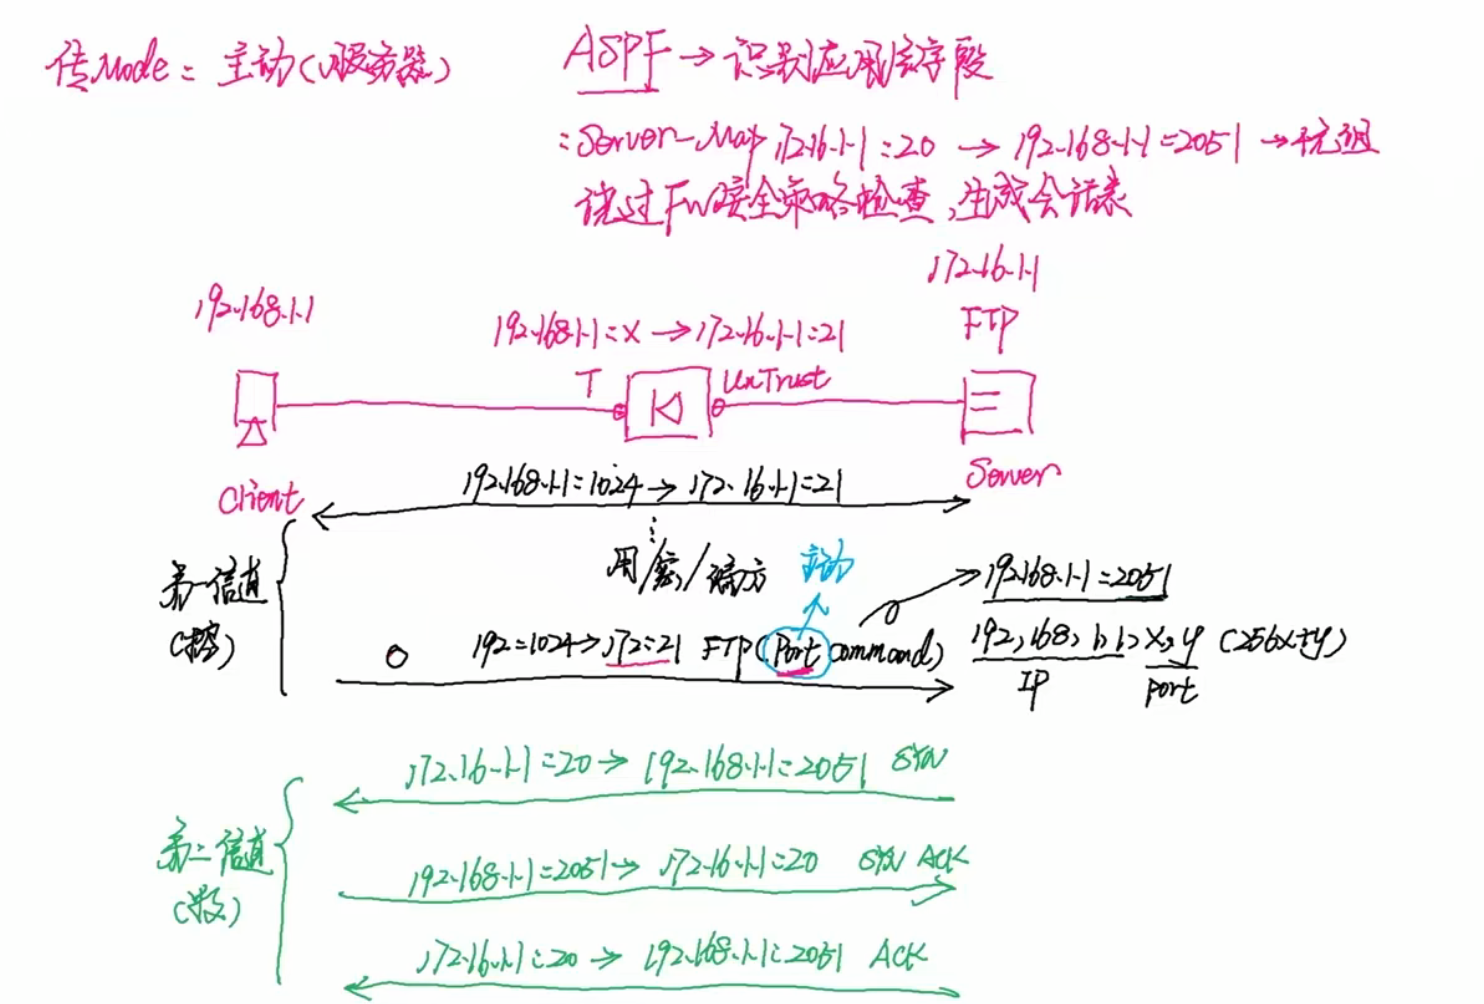 传Mode: 主动(服务器)
ASPF → 识别应用层字段
: Server-Map 172.16.1.1:20 → 192.168.1.1:2051 → 五元组
绕过FW安全策略检查,生成会话表
172.16.1.1
FTP
192.168.1.1
192.168.1.1:x → 172.16.1.1:21
T
UnTrust
Client
Server
192.168.1.1:1024 → 172.16.1.1:21
用/密/
主动
192.168.1.1:2051
第一信道
(控)
192:1024→172:21 FTP(Port command)
192,168,1,1,x,y (256x+y)
IP
Port
172.16.1.1:20→ 192.168.1.1:2051 SYN
第二信道
(数)
192.168.1.1:2051→ 172.16.1.1:20 SYN ACK
172.16.1.1:20 → 192.168.1.1:2051 ACK